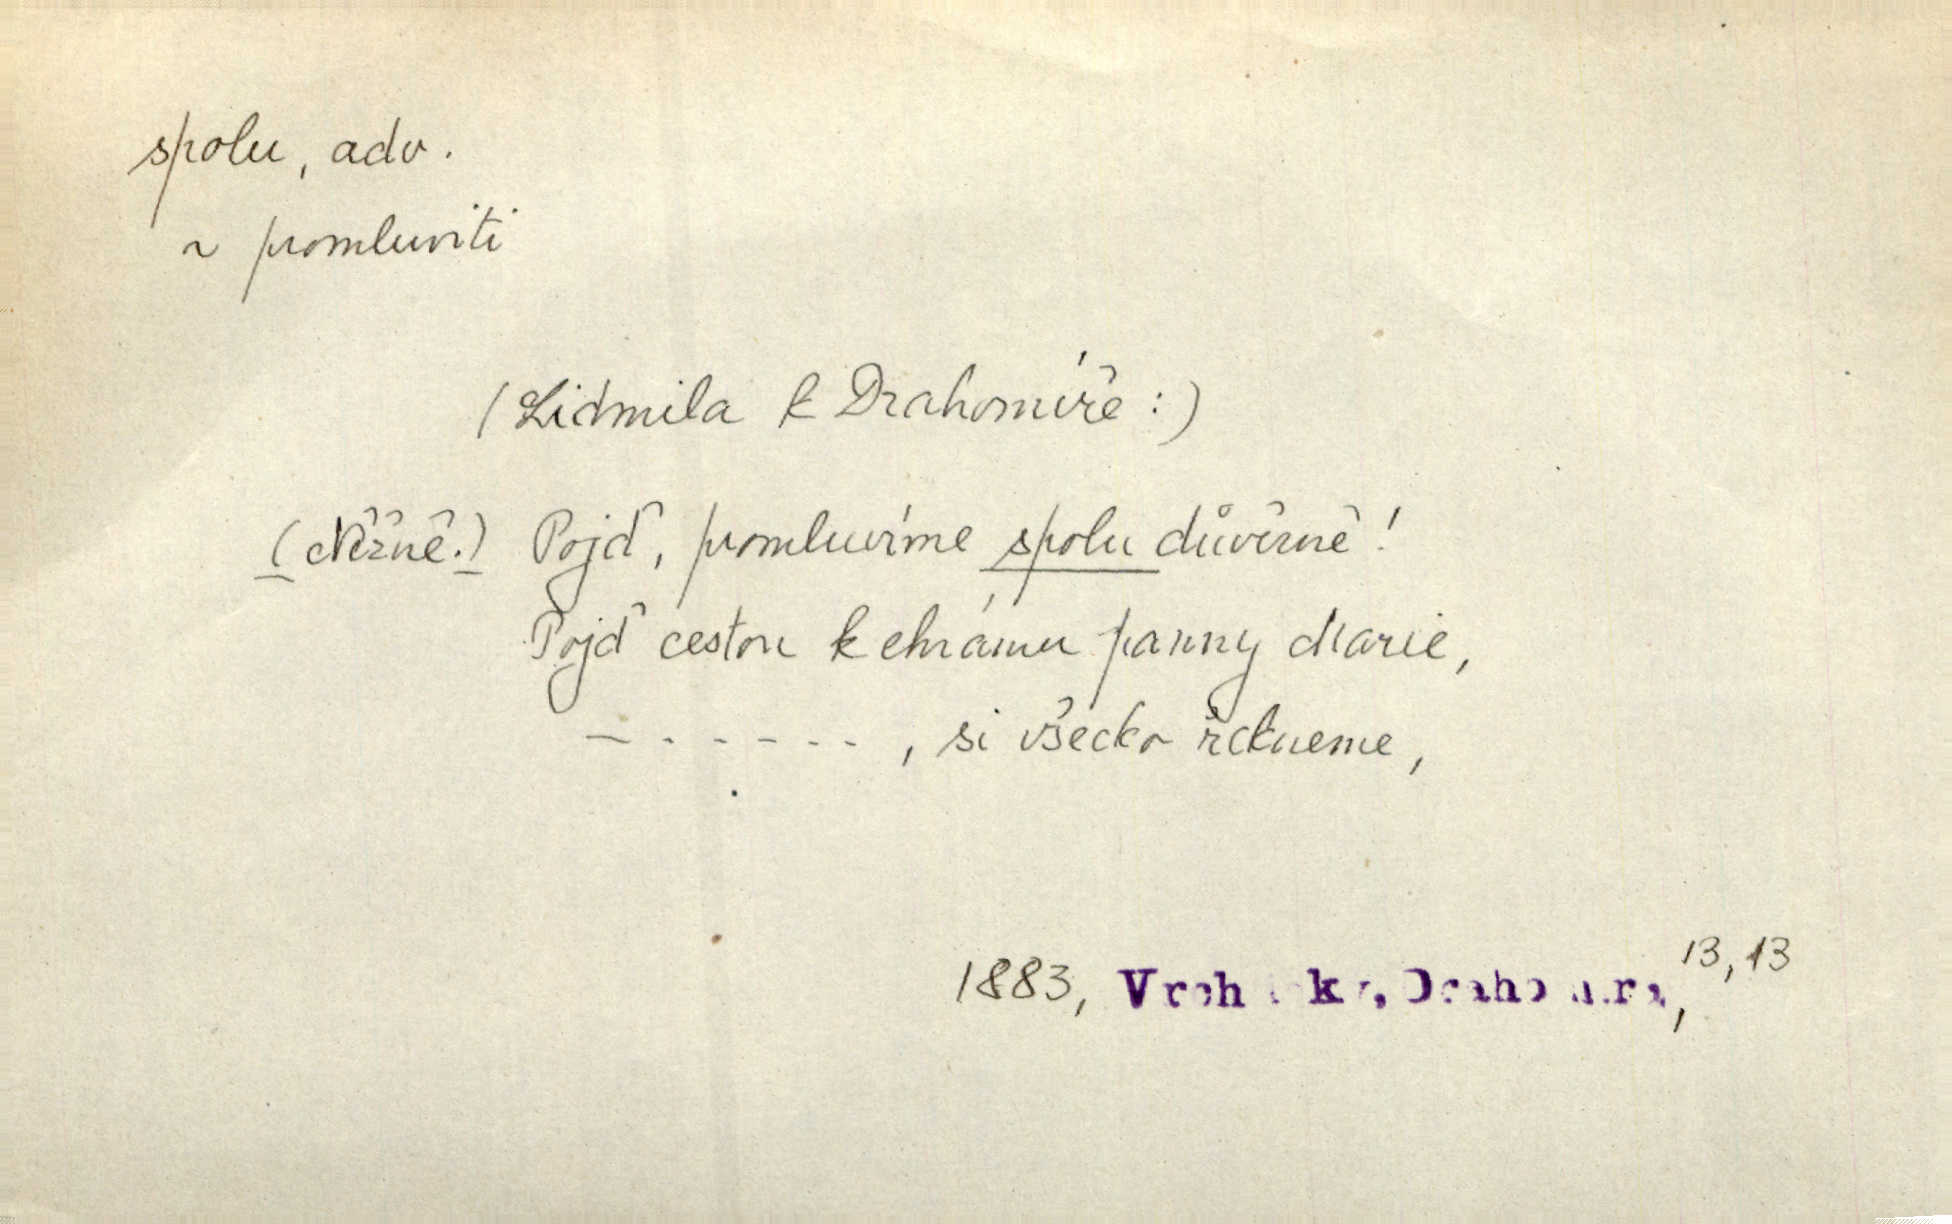 spolu, adv.
~ promluviti
(Lidmila k Drahomíře:)
(Něžně.) Pojď, promluvíme spolu důvěrně!
Pojď cestou k chrámu panny Marie,
– - - - - - -, si všecko řekneme,
1883, Vrchlický, Drahomíra, 13, 13